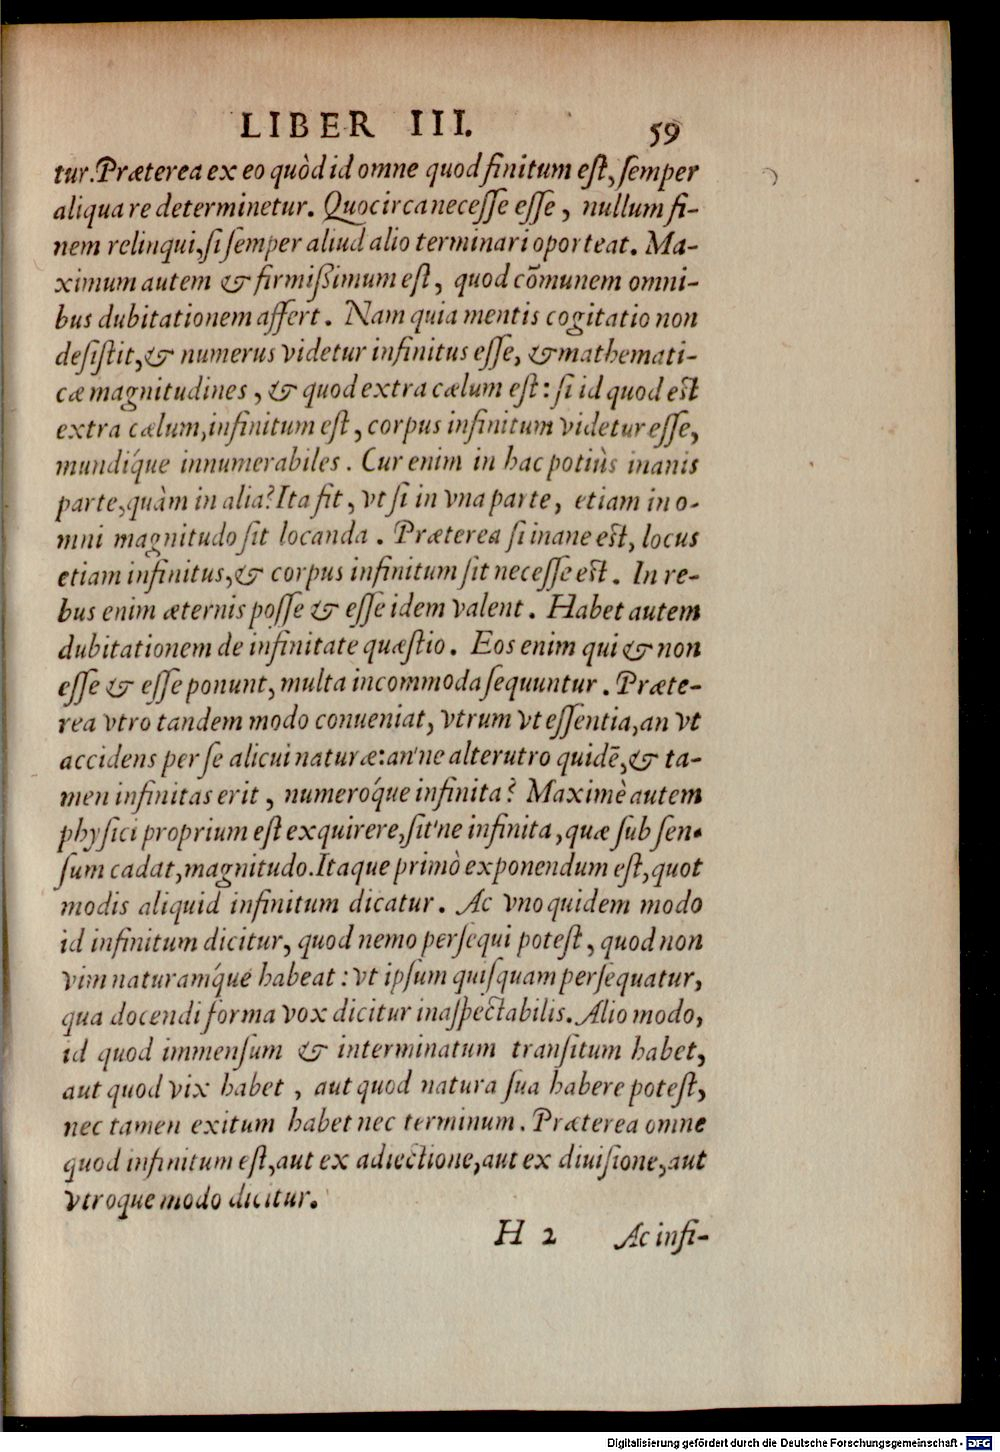 LIBER III. 59
tur. Præterea ex eo quòd id omne quod finitum eſt, ſemper
aliqua re determinetur. Quocirca neceſſe eſſe, nullum fi-
nem relinqui, ſi ſemper aliud alio terminari oporteat. Ma-
ximum autem & firmißimum eſt, quod cõmunem omni-
bus dubitationem affert. Nam quia mentis cogitatio non
deſiſtit, & numerus videtur infinitus eſſe, & mathemati-
cæ magnitudines, & quod extra cælum eſt: ſi id quod eſt
extra cælum, infinitum eſt, corpus infinitum videtur eſſe,
mundíque innumerabiles. Cur enim in hac potiùs inanis
parte, quàm in alia? Ita fit, vt ſi in vna parte, etiam in o-
mni magnitudo ſit locanda. Præterea ſi inane est, locus
etiam infinitus, & corpus infinitum ſit neceſſe est. In re-
bus enim æternis poſſe & eſſe idem valent. Habet autem
dubitationem de infinitate quæſtio. Eos enim qui & non
eſſe & eſſe ponunt, multa incommoda ſequuntur. Præte-
rea vtro tandem modo conueniat, vtrum vt eſſentia, an vt
accidens per ſe alicui naturæ: an'ne alterutro quidẽ, & ta-
men infinitas erit, numeróque infinita? Maximè autem
phyſici proprium eſt exquirere, ſit'ne infinita, quæ ſub ſen-
ſum cadat, magnitudo. Itaque primò exponendum eſt, quot
modis aliquid infinitum dicatur. Ac vno quidem modo
id infinitum dicitur, quod nemo perſequi poteſt, quod non
vim naturamq́ue habeat: vt ipſum quiſquam perſequatur,
qua docendi forma vox dicitur inaſpectabilis. Alio modo,
id quod immenſum & interminatum tranſitum habet,
aut quod vix habet, aut quod natura ſua habere poteſt,
nec tamen exitum habet nec terminum. Præterea omne
quod infinitum eſt, aut ex adiectione, aut ex diuiſione, aut
vtroque modo dicitur.
H 2 Ac infi-
Digitalisierung gefördert durch die Deutsche Forschungsgemeinschaft - DFG